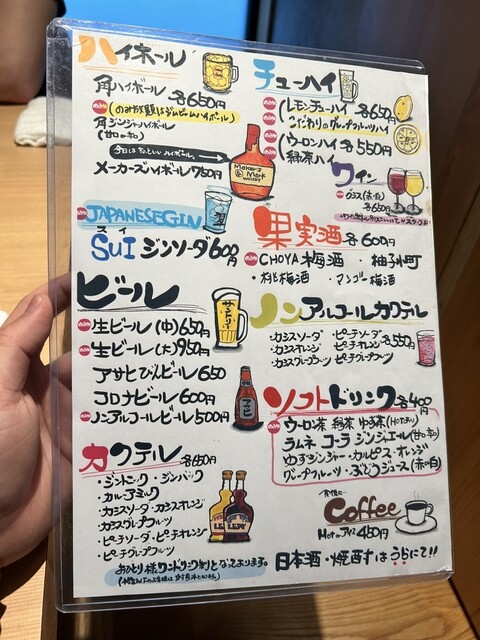 ハイボール
角ハイボール 各650円
のみ放 (のみ放題はジムビームハイボール)
角ジンジャーハイボール
(甘口or辛口)
今日はちょといいハイボール。
メーカーズハイボール 750円
Maker's Mark WHISKY
のみ放 JAPANESE GIN
スイ
SUI ジンソーダ 600円
ビール
のみ放 生ビール(中) 650円
のみ放 生ビール(大) 950円
アサヒびんビール 650
コロナビール 600円
のみ放 ノンアルコールビール 500円
サントリー
カクテル 各650
のみ放
・ジントニック・ジンバック
・カルーアミルク
・カシスソーダ・カシスオレンジ
・カシスグレープフルーツ
・ピーチソーダ・ピーチオレンジ
・ピーチグレープフルーツ
おひとり様ワンドリンク制となっております。
チューハイ
のみ放 レモンチューハイ 各650円
のみ放 こだわりのグレープフルーツハイ
のみ放 ウーロンハイ 各550円
のみ放 緑茶ハイ
ワイン
のみ放 グラス(赤・白)
各650円
果実酒 各600円
のみ放 CHOYA梅酒・柚子小町
・桃梅酒・マンゴー梅酒
ノンアルコールカクテル
・カシスソーダ・ピーチソーダ
・カシスオレンジ・ピーチオレンジ 各550円
・カシスグレープフルーツ・ピーチグレープフルーツ
ソフトドリンク 各400円
のみ放 ウーロン茶 緑茶 ゆず茶(Hotあり)
ラムネ コーラ ジンジャエール(甘or辛)
ゆずジンジャー・カルピス・オレンジ
グレープフルーツ・ぶどうジュース(赤or白)
食後に…
Coffee
Hot or アイス 450円
日本酒・焼酎はうらにて!!